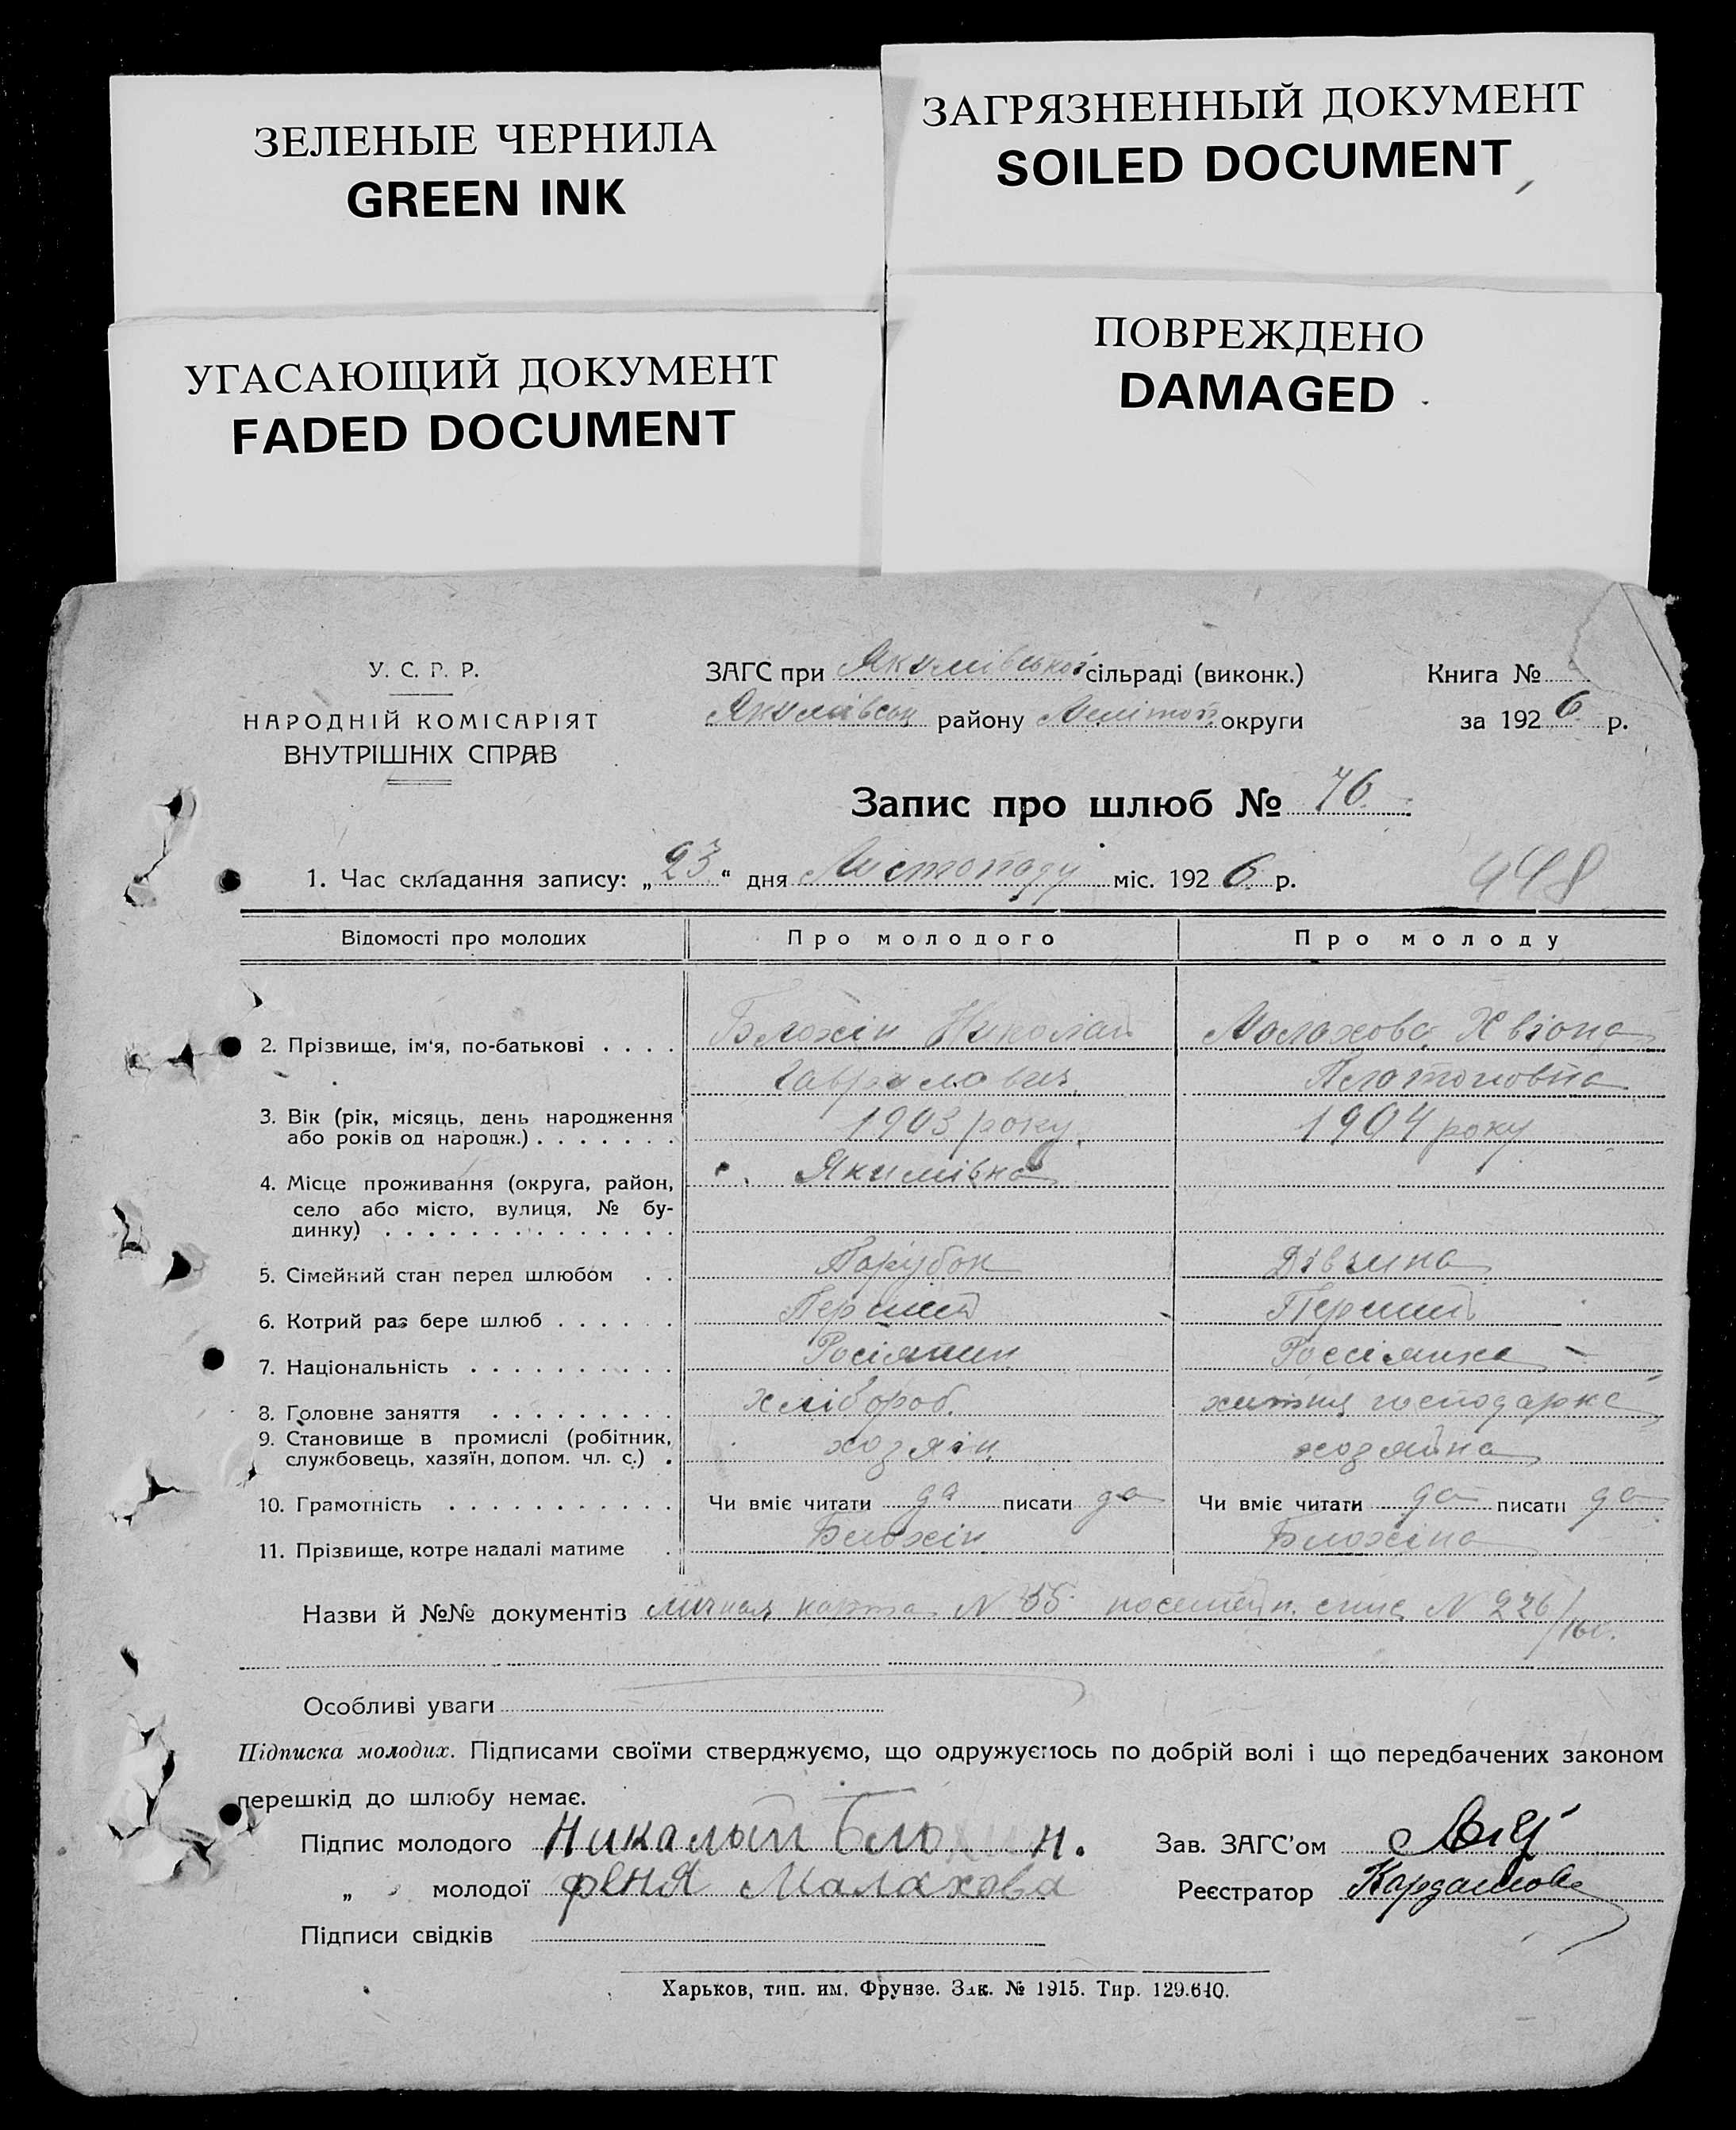 ЗЕЛЕНЫЕ ЧЕРНИЛА
GREEN INK
ЗАГРЯЗНЕННЫЙ ДОКУМЕНТ
SOILED DOCUMENT
УГАСАЮЩИЙ ДОКУМЕНТ
FADED DOCUMENT
ПОВРЕЖДЕНО
DAMAGED
У. С. Р. Р.
НАРОДНІЙ КОМІСАРІЯТ
ВНУТРІШНІХ СПРАВ
ЗАГС при Якимівської сільраді (виконк.)
Якимівськ району Мелітоп. округи
Книга №
за 1926 р.
Запис про шлюб № 76
1. Час складання запису: „23" дня Листопаду міс. 1926 р.
948
Відомості про молодих Про молодого Про молоду
2. Прізвище, ім'я, по-батькові . . . . Блохін Николай Молохова Хвіона
Гаврилович Платоновна
3. Вік (рік, місяць, день народження
або років од народж.) . . . . . . . 1903 року. 1904 року
4. Місце проживання (округа, район,
село або місто, вулиця, № бу-
динку) . . . . . . . . . . . . . . с. Якимівка
5. Сімейний стан перед шлюбом . . Парубок Дівчина
6. Котрий раз бере шлюб . . . . . . Перший Перший
7. Національність . . . . . . . . . . Росіянин Россіянка
8. Головне заняття . . . . . . . . . хлібороб. господарка
9. Становище в промислі (робітник,
службовець, хазяїн, допом. чл. с.) . хозяін хозяйка
10. Грамотність . . . . . . . . . . . Чи вміє читати да писати да Чи вміє читати да писати да
11. Прізвище, котре надалі матиме . Блохін Блохіна
Назви й №№ документів личная карта N 35 посемейн. спис N 226/16
Особливі уваги
Підписка молодих. Підписами своїми стверджуємо, що одружуємось по добрій волі і що передбачених законом
перешкід до шлюбу немає.
Підпис молодого Никалай Блохин. Зав. ЗАГС'ом
„ молодої феня Малахова Реєстратор Кардашова
Підписи свідків
Харьков, тип. им. Фрунзе. Зак. № 1915. Тир. 129.640.